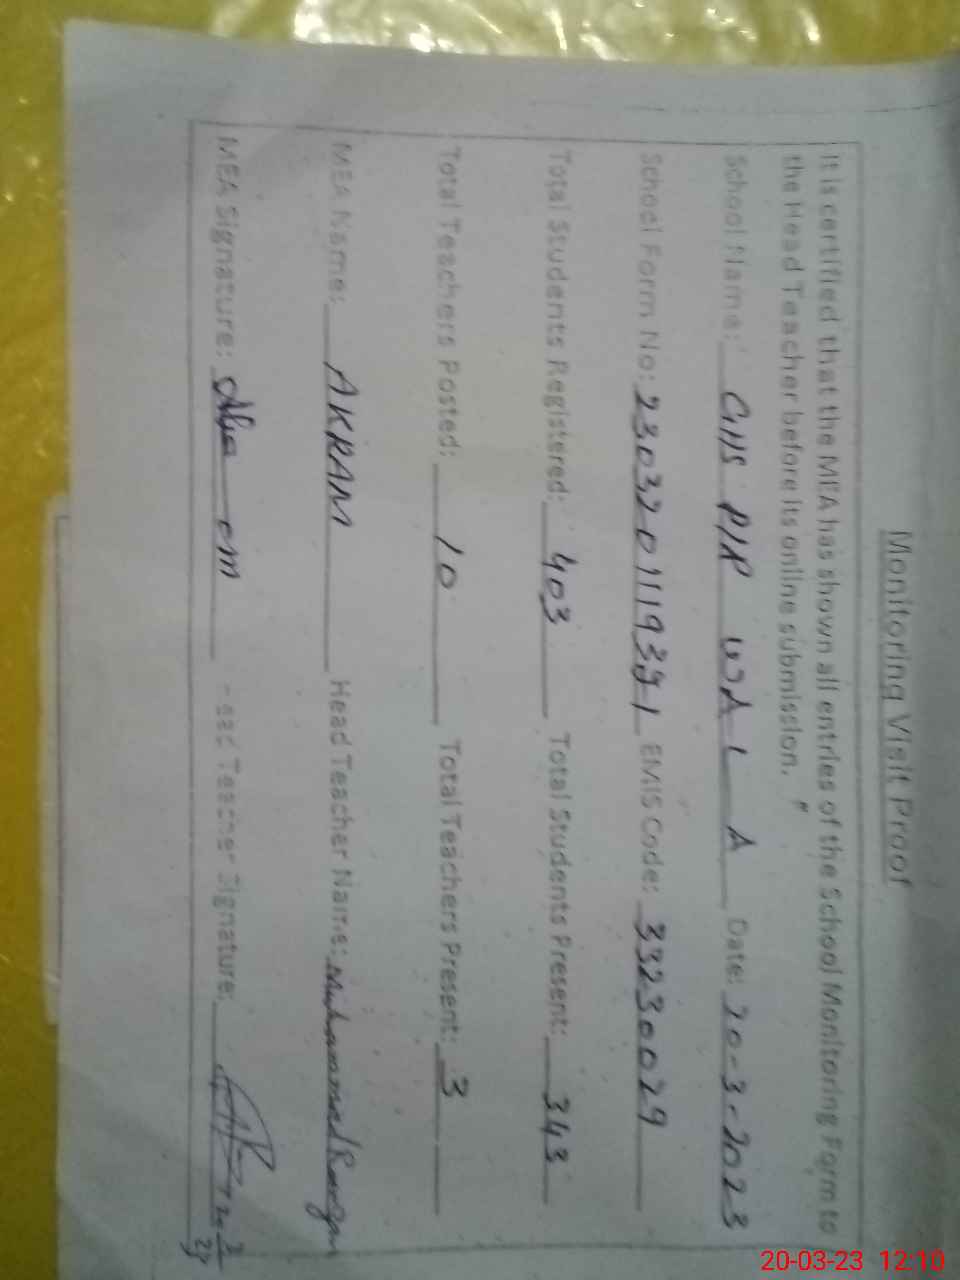 Monitoring Visit Proof
It is certified that the MEA has shown all entries of the School Monitoring Form to
the Head Teacher before its online submission."
School Name: GHS PIR WALA Date: 20-3-2023
School Form No: EMIS Code: 33230029
Total Students Registered: 403 Total Students Present: 343
Total Teachers Posted: 10 Total Teachers Present: 3
MEA Name: AKRAM Head Teacher Name: Muhammad
MEA Signature: Head Teacher Signature:
20-03-23 12:10